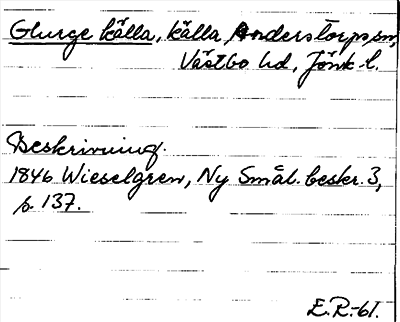 Glurge källa, källa, Anderstorps sn,
Västbo hd, Jönk. l.
Beskrivning.
1846 Wieselgren, Ny Smål. beskr. 3,
s. 137.
E.R.-61.